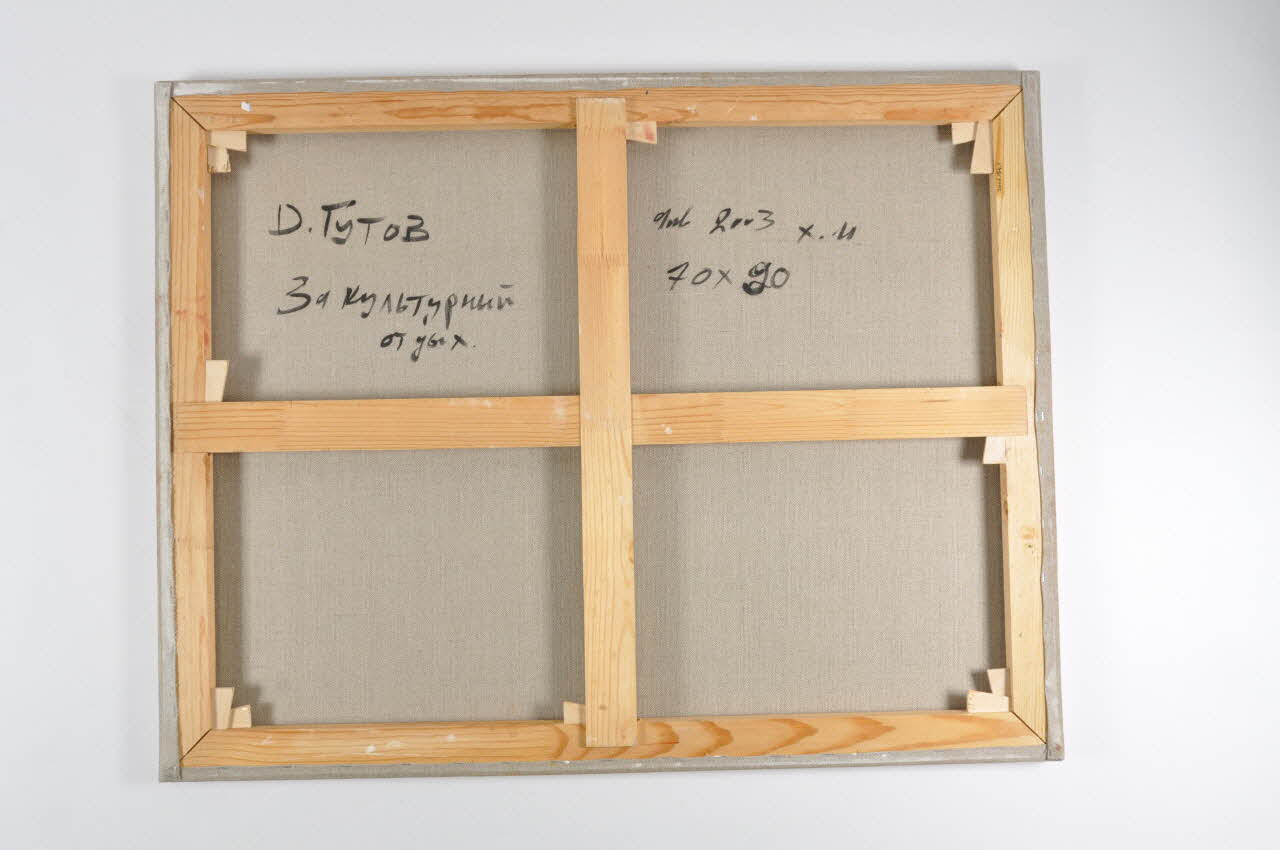 Д. Гутов
За культурный
отдых.
2003 х. м
70 х 90